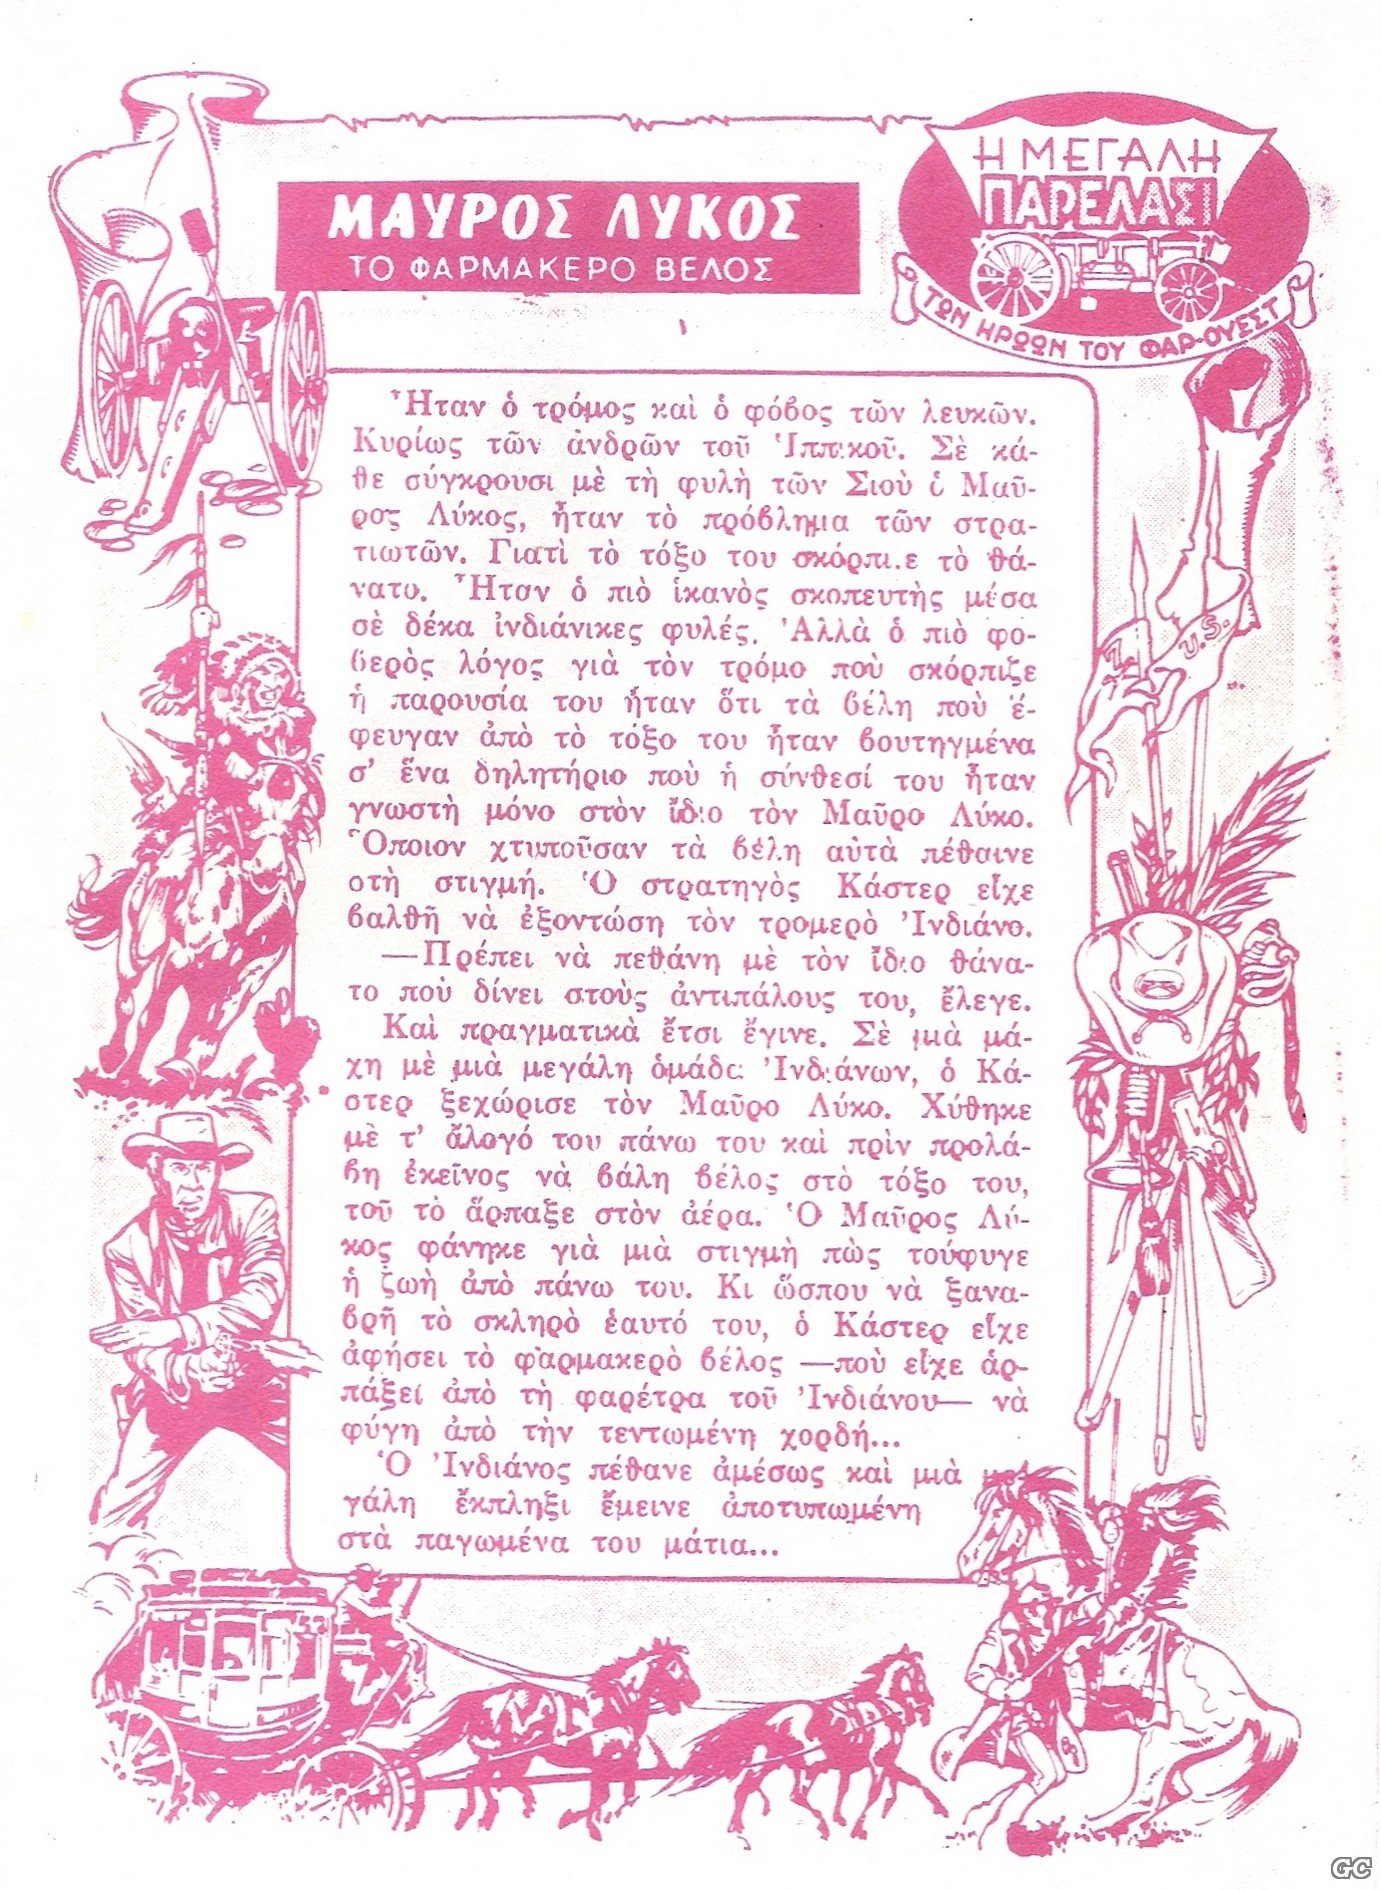 ΜΑΥΡΟΣ ΛΥΚΟΣ
ΤΟ ΦΑΡΜΑΚΕΡΟ ΒΕΛΟΣ
Η ΜΕΓΑΛΗ
ΠΑΡΕΛΑΣΙ
ΤΩΝ ΗΡΩΩΝ ΤΟΥ ΦΑΡ-ΟΥΕΣΤ
Ἦταν ὁ τρόμος καὶ ὁ φόβος τῶν λευκῶν.
Κυρίως τῶν ἀνδρῶν τοῦ Ἱππικοῦ. Σὲ κά-
θε σύγκρουσι μὲ τὴ φυλὴ τῶν Σιοὺ ὁ Μαῦ-
ρος Λύκος, ἦταν τὸ πρόβλημα τῶν στρα-
τιωτῶν. Γιατὶ τὸ τόξο του σκόρπιζε τὸ θά-
νατο. Ἦταν ὁ πιὸ ἱκανὸς σκοπευτὴς μέσα
σὲ δέκα ἰνδιάνικες φυλές. Ἀλλὰ ὁ πιὸ φο-
βερὸς λόγος γιὰ τὸν τρόμο ποὺ σκόρπιζε
ἡ παρουσία του ἦταν ὅτι τὰ βέλη ποὺ ἔ-
φευγαν ἀπὸ τὸ τόξο του ἦταν βουτηγμένα
σ' ἕνα δηλητήριο ποὺ ἡ σύνθεσί του ἦταν
γνωστὴ μόνο στὸν ἴδιο τὸν Μαῦρο Λύκο.
Ὅποιον χτυποῦσαν τὰ βέλη αὐτὰ πέθαινε
στὴ στιγμή. Ὁ στρατηγὸς Κάστερ εἶχε
βαλθῆ νὰ ἐξοντώση τὸν τρομερὸ Ἰνδιάνο.
—Πρέπει νὰ πεθάνη μὲ τὸν ἴδιο θάνα-
το ποὺ δίνει στοὺς ἀντιπάλους του, ἔλεγε.
Καὶ πραγματικὰ ἔτσι ἔγινε. Σὲ μιὰ μά-
χη μὲ μιὰ μεγάλη ὁμάδα Ἰνδιάνων, ὁ Κά-
στερ ξεχώρισε τὸν Μαῦρο Λύκο. Χύθηκε
μὲ τ' ἄλογό του πάνω του καὶ πρὶν προλά-
βη ἐκεῖνος νὰ βάλη βέλος στὸ τόξο του,
τοῦ τὸ ἅρπαξε στὸν ἀέρα. Ὁ Μαῦρος Λύ-
κος φάνηκε γιὰ μιὰ στιγμὴ πὼς τοὔφυγε
ἡ ζωὴ ἀπὸ πάνω του. Κι ὥσπου νὰ ξανα-
βρῆ τὸ σκληρὸ ἑαυτό του, ὁ Κάστερ εἶχε
ἀφήσει τὸ φαρμακερὸ βέλος —ποὺ εἶχε ἁρ-
πάξει ἀπὸ τὴ φαρέτρα τοῦ Ἰνδιάνου— νὰ
φύγη ἀπὸ τὴν τεντωμένη χορδή...
Ὁ Ἰνδιάνος πέθανε ἀμέσως καὶ μιὰ με-
γάλη ἔκπληξι ἔμεινε ἀποτυπωμένη
στὰ παγωμένα του μάτια...
U.S.
GC